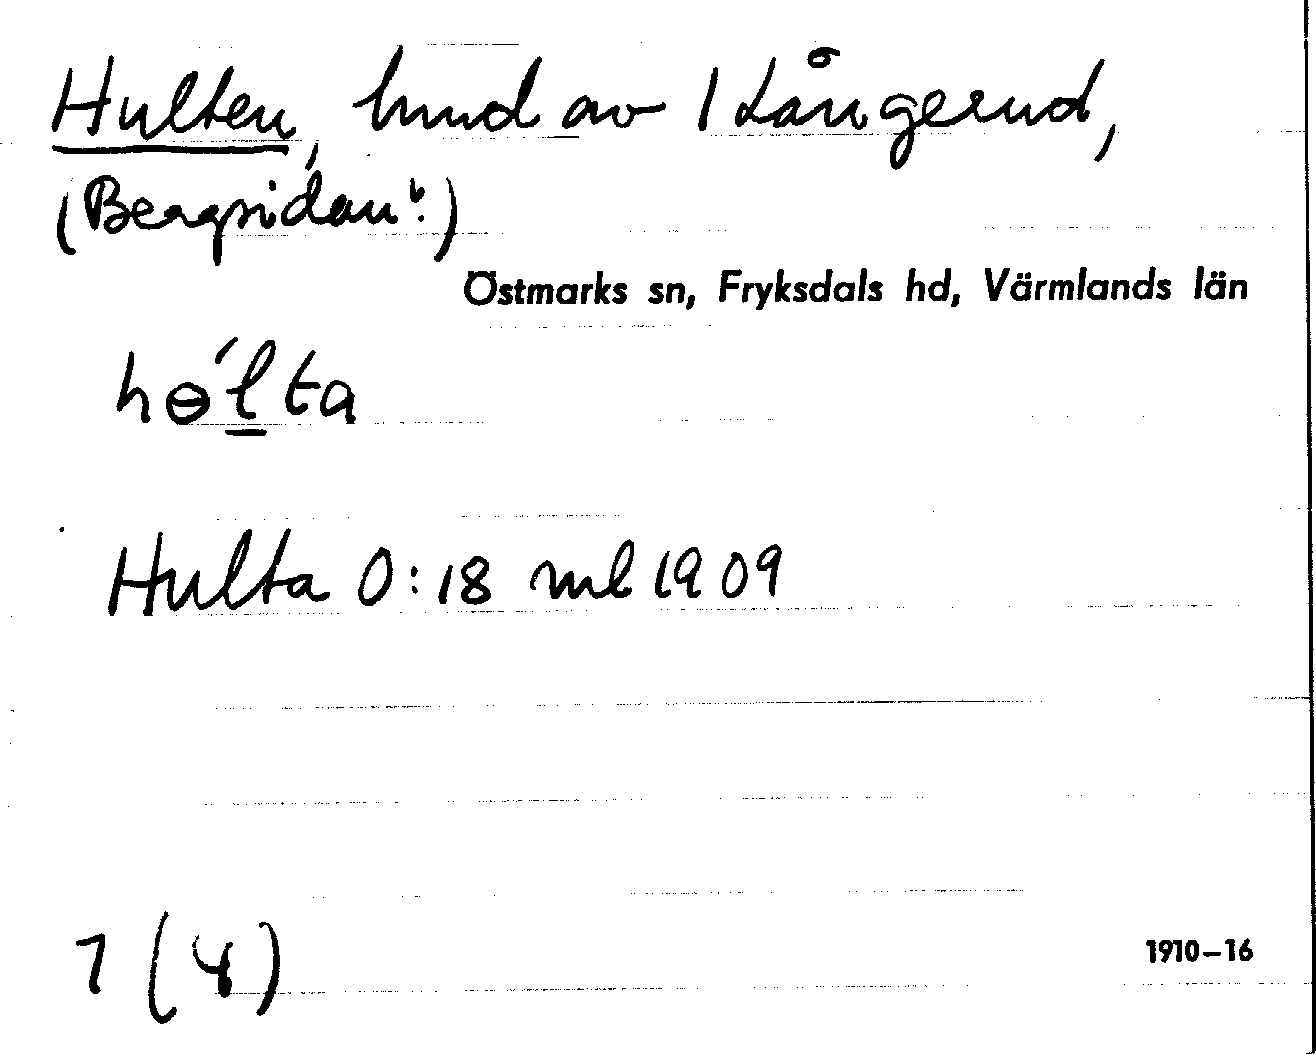 Hulten, hmd av 1 Långerud,
(Bergsidan".)
Östmarks sn, Fryksdals hd, Värmlands län
hɵ́lta
Hulta 0:18 ml 1909
7 (4)
1910–16